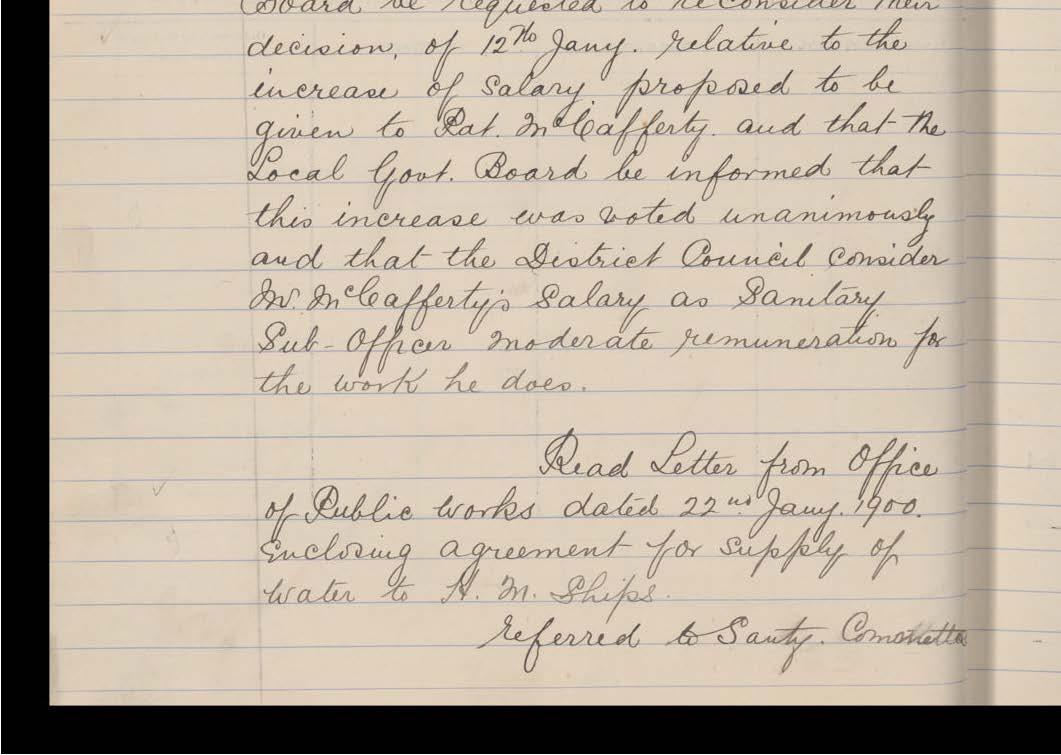 Board be requested to reconsider their
decision, of 12th Jany. relative to the
increase of Salary proposed to be
given to Pat. McCafferty. and that the
Local Govt. Board be informed that
this increase was voted unanimously
and that the District Council consider
Mr. McCafferty's Salary as Sanitary
Sub-Officer moderate remuneration for
the work he does.
Read Letter from Office
of Public Works dated 22nd Jany. 1900.
Enclosing agreement for supply of
Water to H. M. Ships.
referred to Santy.